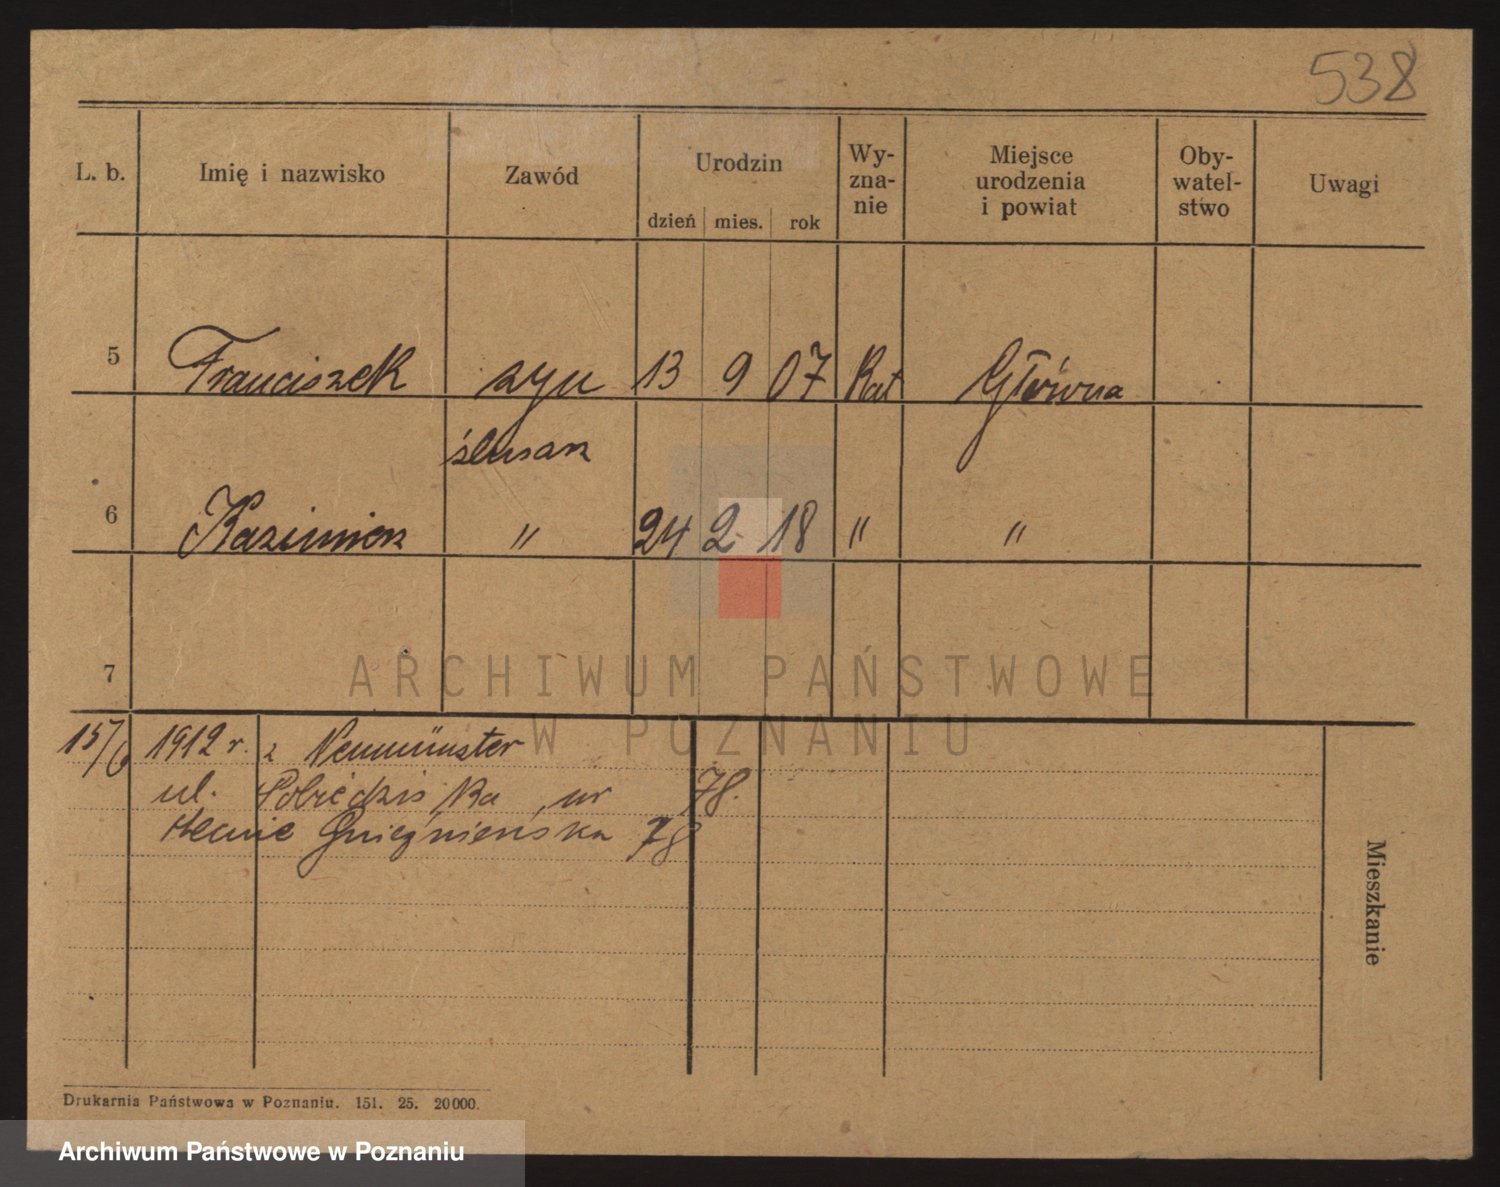 538
L. b. Imię i nazwisko Zawód Urodzin Wy-zna-nie Miejsce urodzenia i powiat Oby-watel-stwo Uwagi
dzień mies. rok
5 Franciszek syn 13 9 07 Kat Główna
ślusarz
6 Kazimierz " 24 2 18 " "
7
ARCHIWUM PAŃSTWOWE
W POZNANIU
15/6 1912 r. z Neumünster
ul. Pobiedziska nr 78.
Gnieźnieńska 78
Mieszkanie
Drukarnia Państwowa w Poznaniu. 151. 25. 20000.
Archiwum Państwowe w Poznaniu